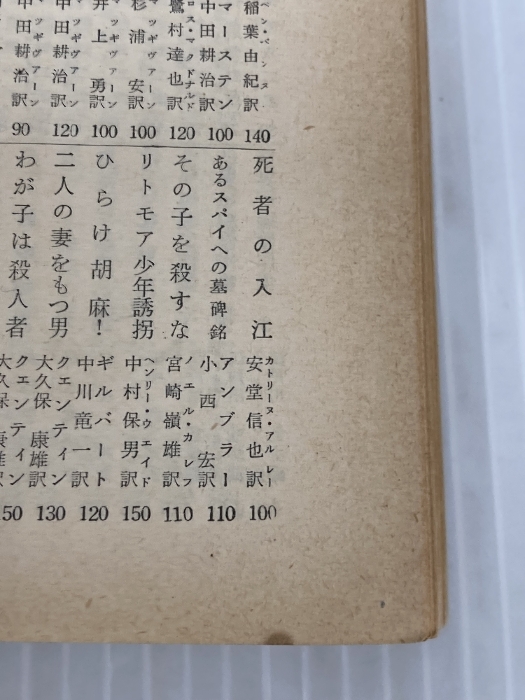 ベン・ベンスン
稲葉由紀訳 140
マーステン
中田耕治訳 100
ロス・マクドナルド
鷺村達也訳 120
マッギヴァーン
杉浦 安訳 100
マッギヴァーン
井上 勇訳 100
マッギヴァーン
中田耕治訳 120
マッギヴァーン
中田耕治訳 90
死者の入江 カトリーヌ・アルレー
安堂信也訳 100
あるスパイへの墓碑銘 アンブラー
小西 宏訳 110
その子を殺すな ノエル・カレフ
宮崎嶺雄訳 110
リトモア少年誘拐 ヘンリー・ウェイド
中村保男訳 150
ひらけ胡麻! ギルバート
中川竜一訳 120
二人の妻をもつ男 クェンティン
大久保 康雄訳 130
わが子は殺人者 クェンティン
大久保 康雄訳 50